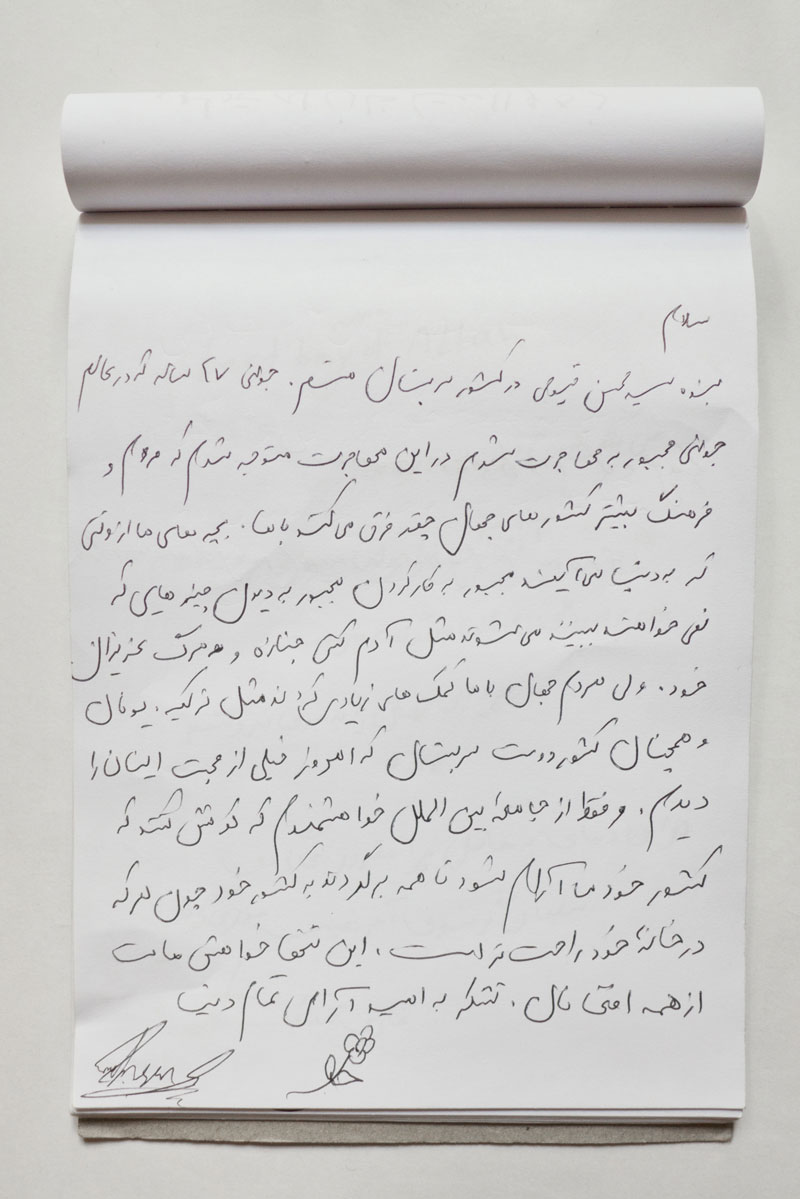 سلام
بنده سید محسن قیومی در کشور صربستان هستم. جوانی ۲۷ ساله که در عالم
جوانی مجبور به مهاجرت شدم در این مهاجرت متوجه شدم که مردم و
فرهنگ بیشتر کشور های جهان چقد فرق می‌کند با ما. بچه های ما از وقتی
که به دنیا می آیند مجبور به کار کردن مجبور به دیدن چیز هایی که
نمی خواهند ببینند می شوند مثل آدم کشی جنازه و مرگ عزیزان
خود. ولی مردم جهان با ما کمک های زیادی کردند مثل ترکیه. یونان
و همچنان کشور دوست صربستان که امروز خیلی از محبت اینان را
دیدم. و فقط از جامعه بین الملل خواهشمندم که کوشش کنند که
کشور خود ما آرام شود تا همه برگردند به کشور خود چون هر که
در خانهٔ خود راحت تر است. این خواهش ماست
از همه. تشکر به امید آرامی تمام دنیا